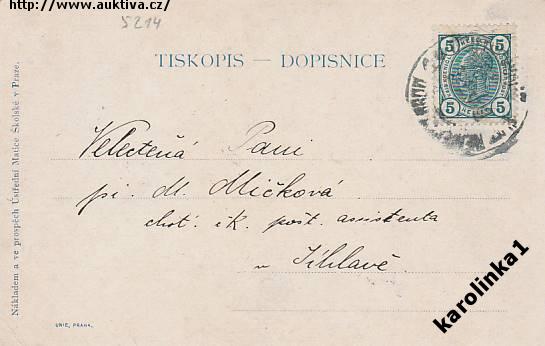 http://www.auktiva.cz/
5214
TISKOPIS — DOPISNICE
5 5
5 HELLER 5
Nákladem a ve prospěch Ústřední Matice Školské v Praze.
Velectěná Paní
pí. M. Mičková
chot. i k. pošt. assistenta
v Jihlavě
UNIE, PRAHA.
karolinka1